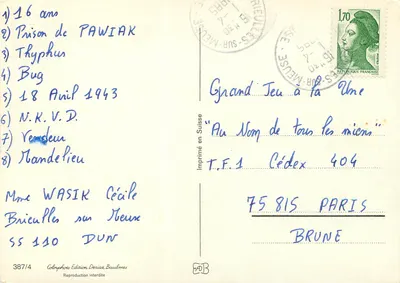 1) 16 ans
2) Prison de PAWIAK
3) Thyphus
4) Bug
5) 18 Avril 1943
6) N.K.V.D.
7) Vendeur
8) Mandelieu
Mme WASIK Cécile
Brieulles sur Meuse
55 110 DUN
387/4
Reproduction interdite
Imprimé en Suisse
BRIEULLES-SUR-MEUSE
1,70
REPUBLIQUE FRANÇAISE
Grand Jeu à la Une
"Au Nom de tous les miens"
T.F.1 Cédex 404
75 815 PARIS
BRUNE